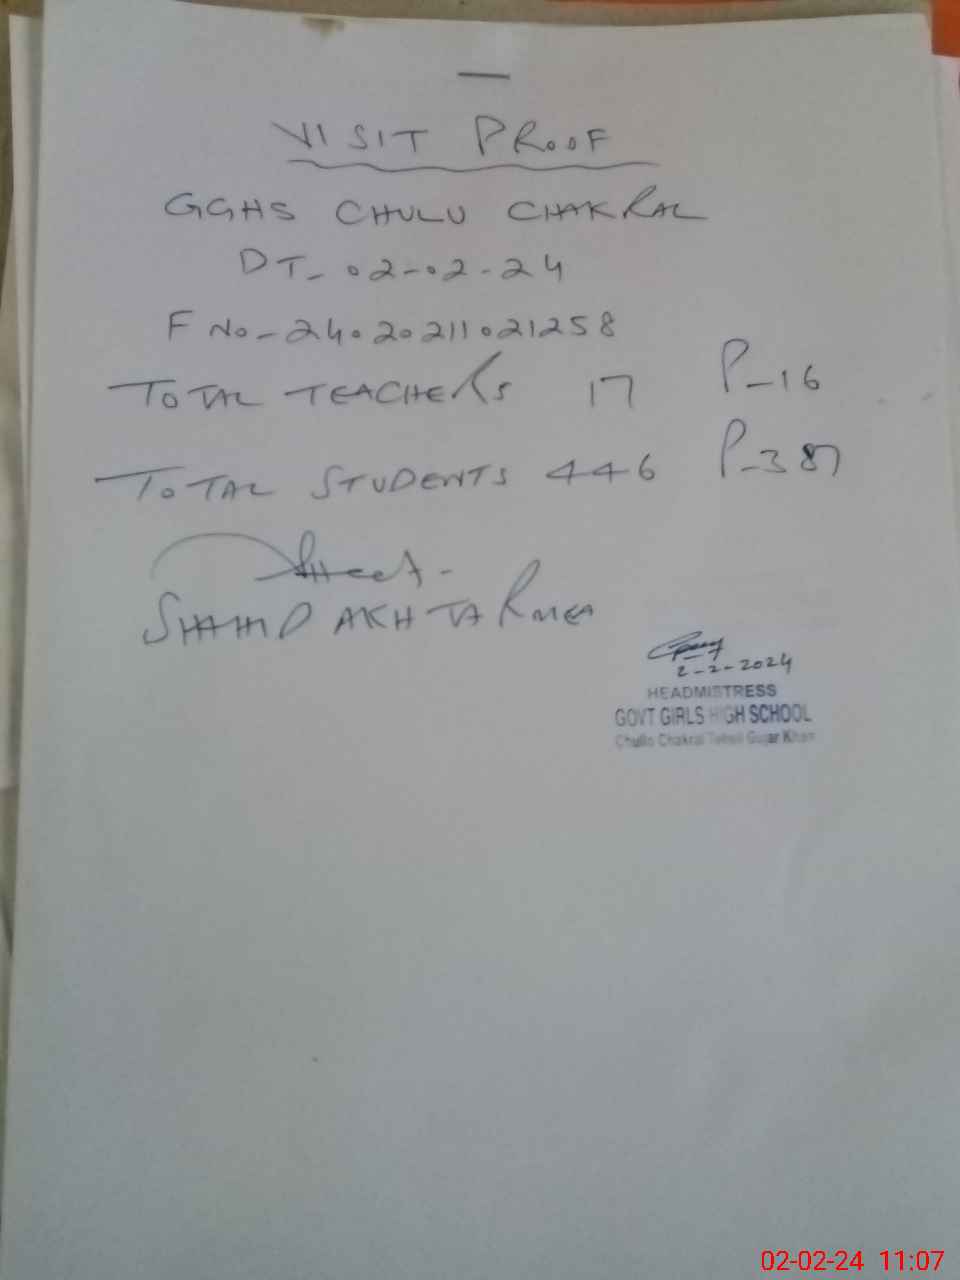 VISIT PROOF
GGHS CHULU CHAKRAL
DT- 02-02-24
F No - 24020211021258
TOTAL TEACHERS 17 P-16
TOTAL STUDENTS 446 P-387
SHAHID AKHTAR MEA
2-2-2024
HEADMISTRESS
GOVT GIRLS HIGH SCHOOL
Chullo Chakral Tehsil Gujar Khan
02-02-24 11:07